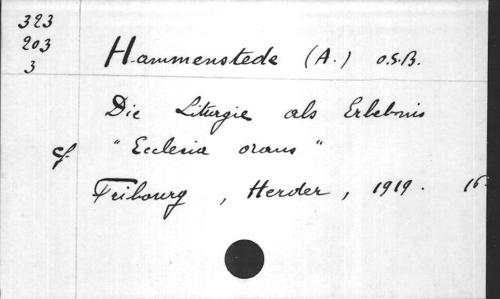 323
203
3
Hammenstede (A.) O.S.B.
Die Liturgie als Erlebnis
cf. "Ecclesia orans"
Fribourg, Herder, 1919. 16